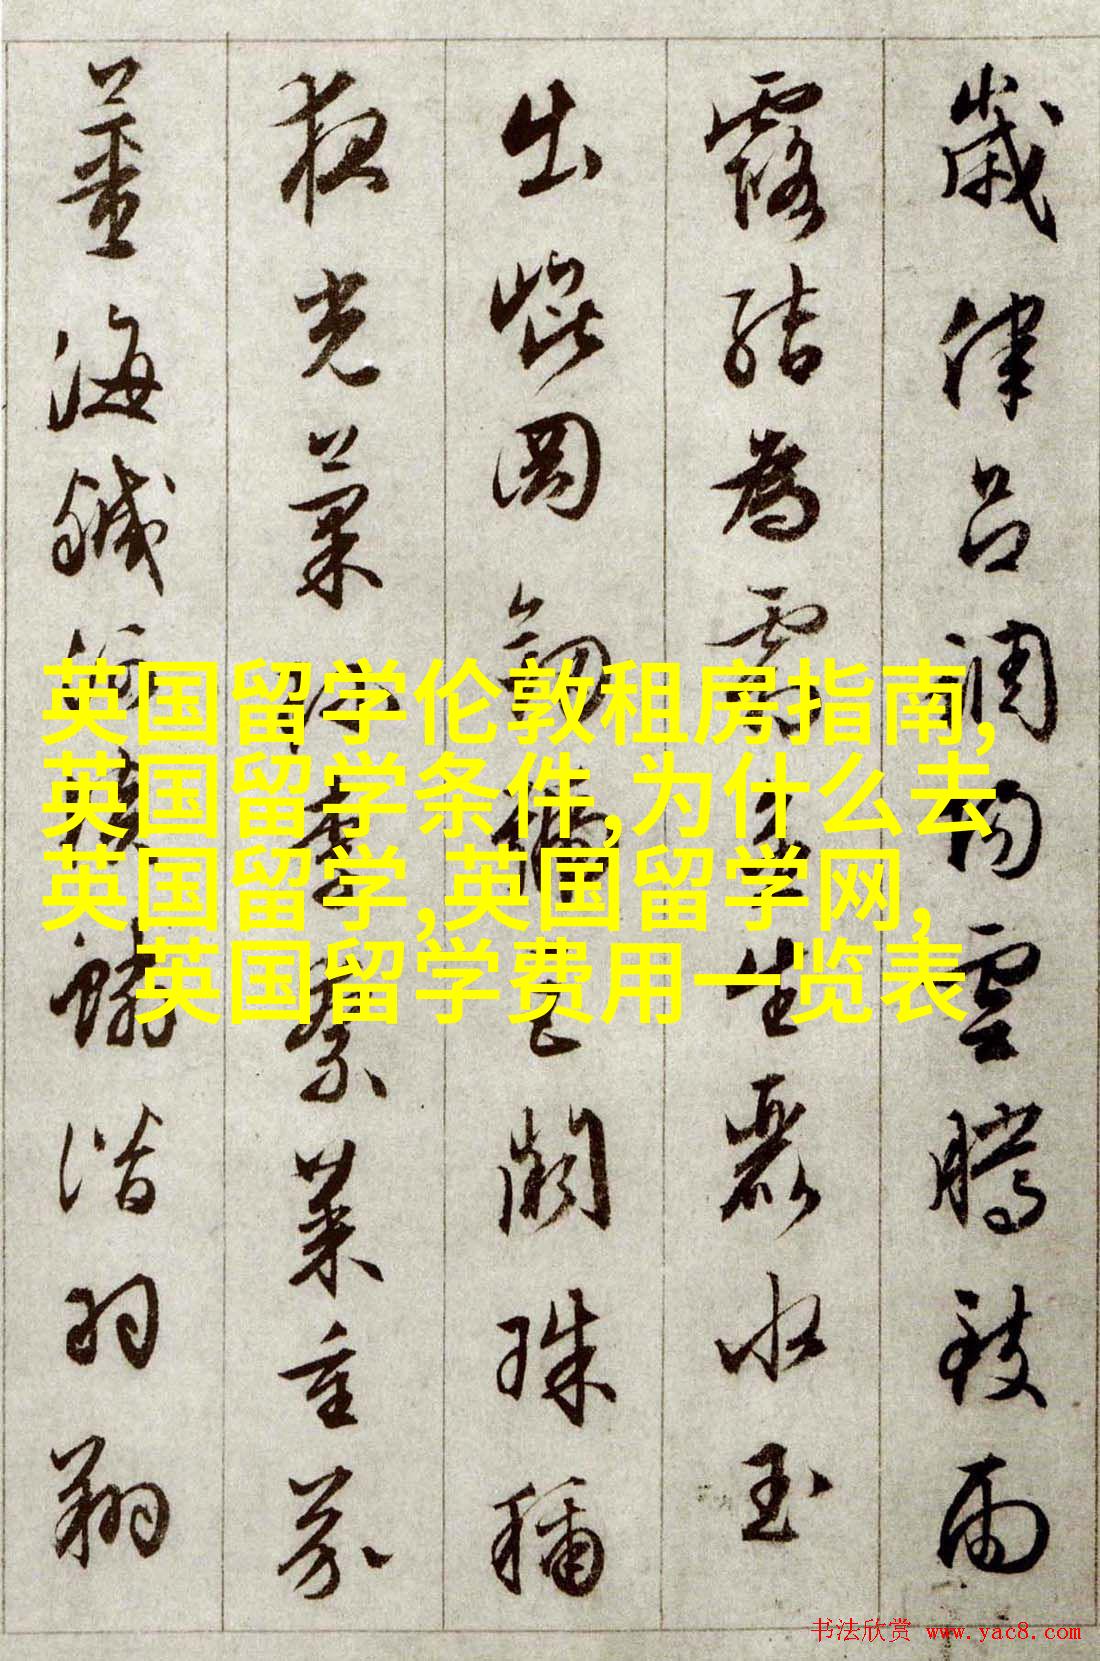 歲律呂調陽雲騰致雨
露結為霜金生麗水玉
出崐岡劍號巨闕珠稱
夜光菓珍李柰菜重芥
薑海鹹河淡鱗潛羽翔
英国留学伦敦租房指南,
英国留学条件,为什么去
英国留学,英国留学网,
英国留学费用一览表
书法欣赏 www.yac8.com